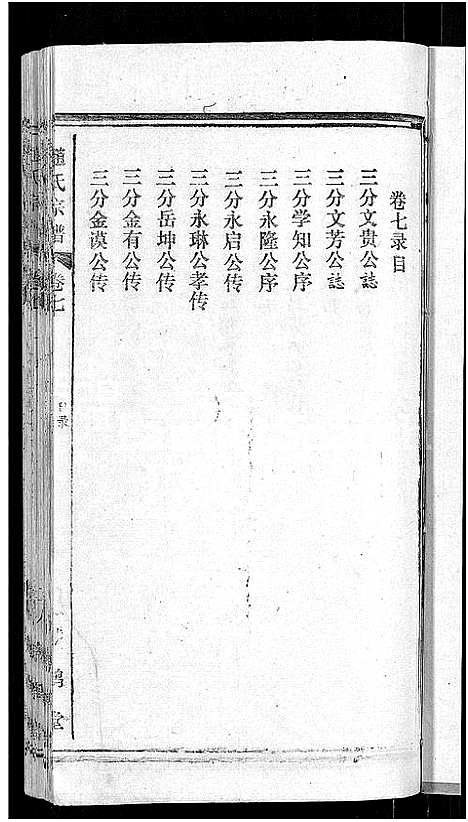 卷七录目
三分文贵公誌
三分文芳公誌
三分学知公序
三分永隆公序
三分永启公传
三分永琳公孝传
三分岳坤公传
三分金有公传
三分金谟公传
趙氏宗譜
卷七
目录
鹤堂